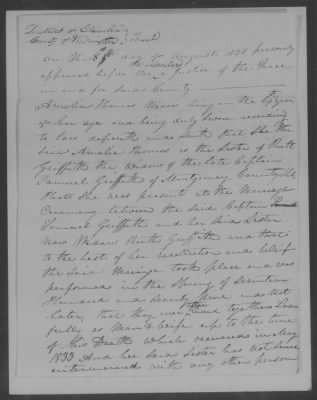 District of Columbia
County of Washington } To wit
On this 8th day of August 1838 personally
appeared before me a Justice of the Peace
in and for said County
Amelia Thomas Widow being in the
of her age and being duly sworn according
to law deposeth and saith that she the
said Amelia Thomas is the Sister of Ruth
Griffith the widow of the late Captain
Samuel Griffith of Montgomery County Md
that she was present at the Marriage
Ceremony between the said Captain
Samuel Griffith and her said Sister
now Widow Ruth Griffith and that
to the best of her recollection and belief
the said Marriage took place and was
performed in the Spring of Seventeen
Hundred and Seventy and not
later, that they lived together
as Man & Wife up to the time
of his Death which occurred in May
1833 And her said Sister has not since
intermarried with any other person